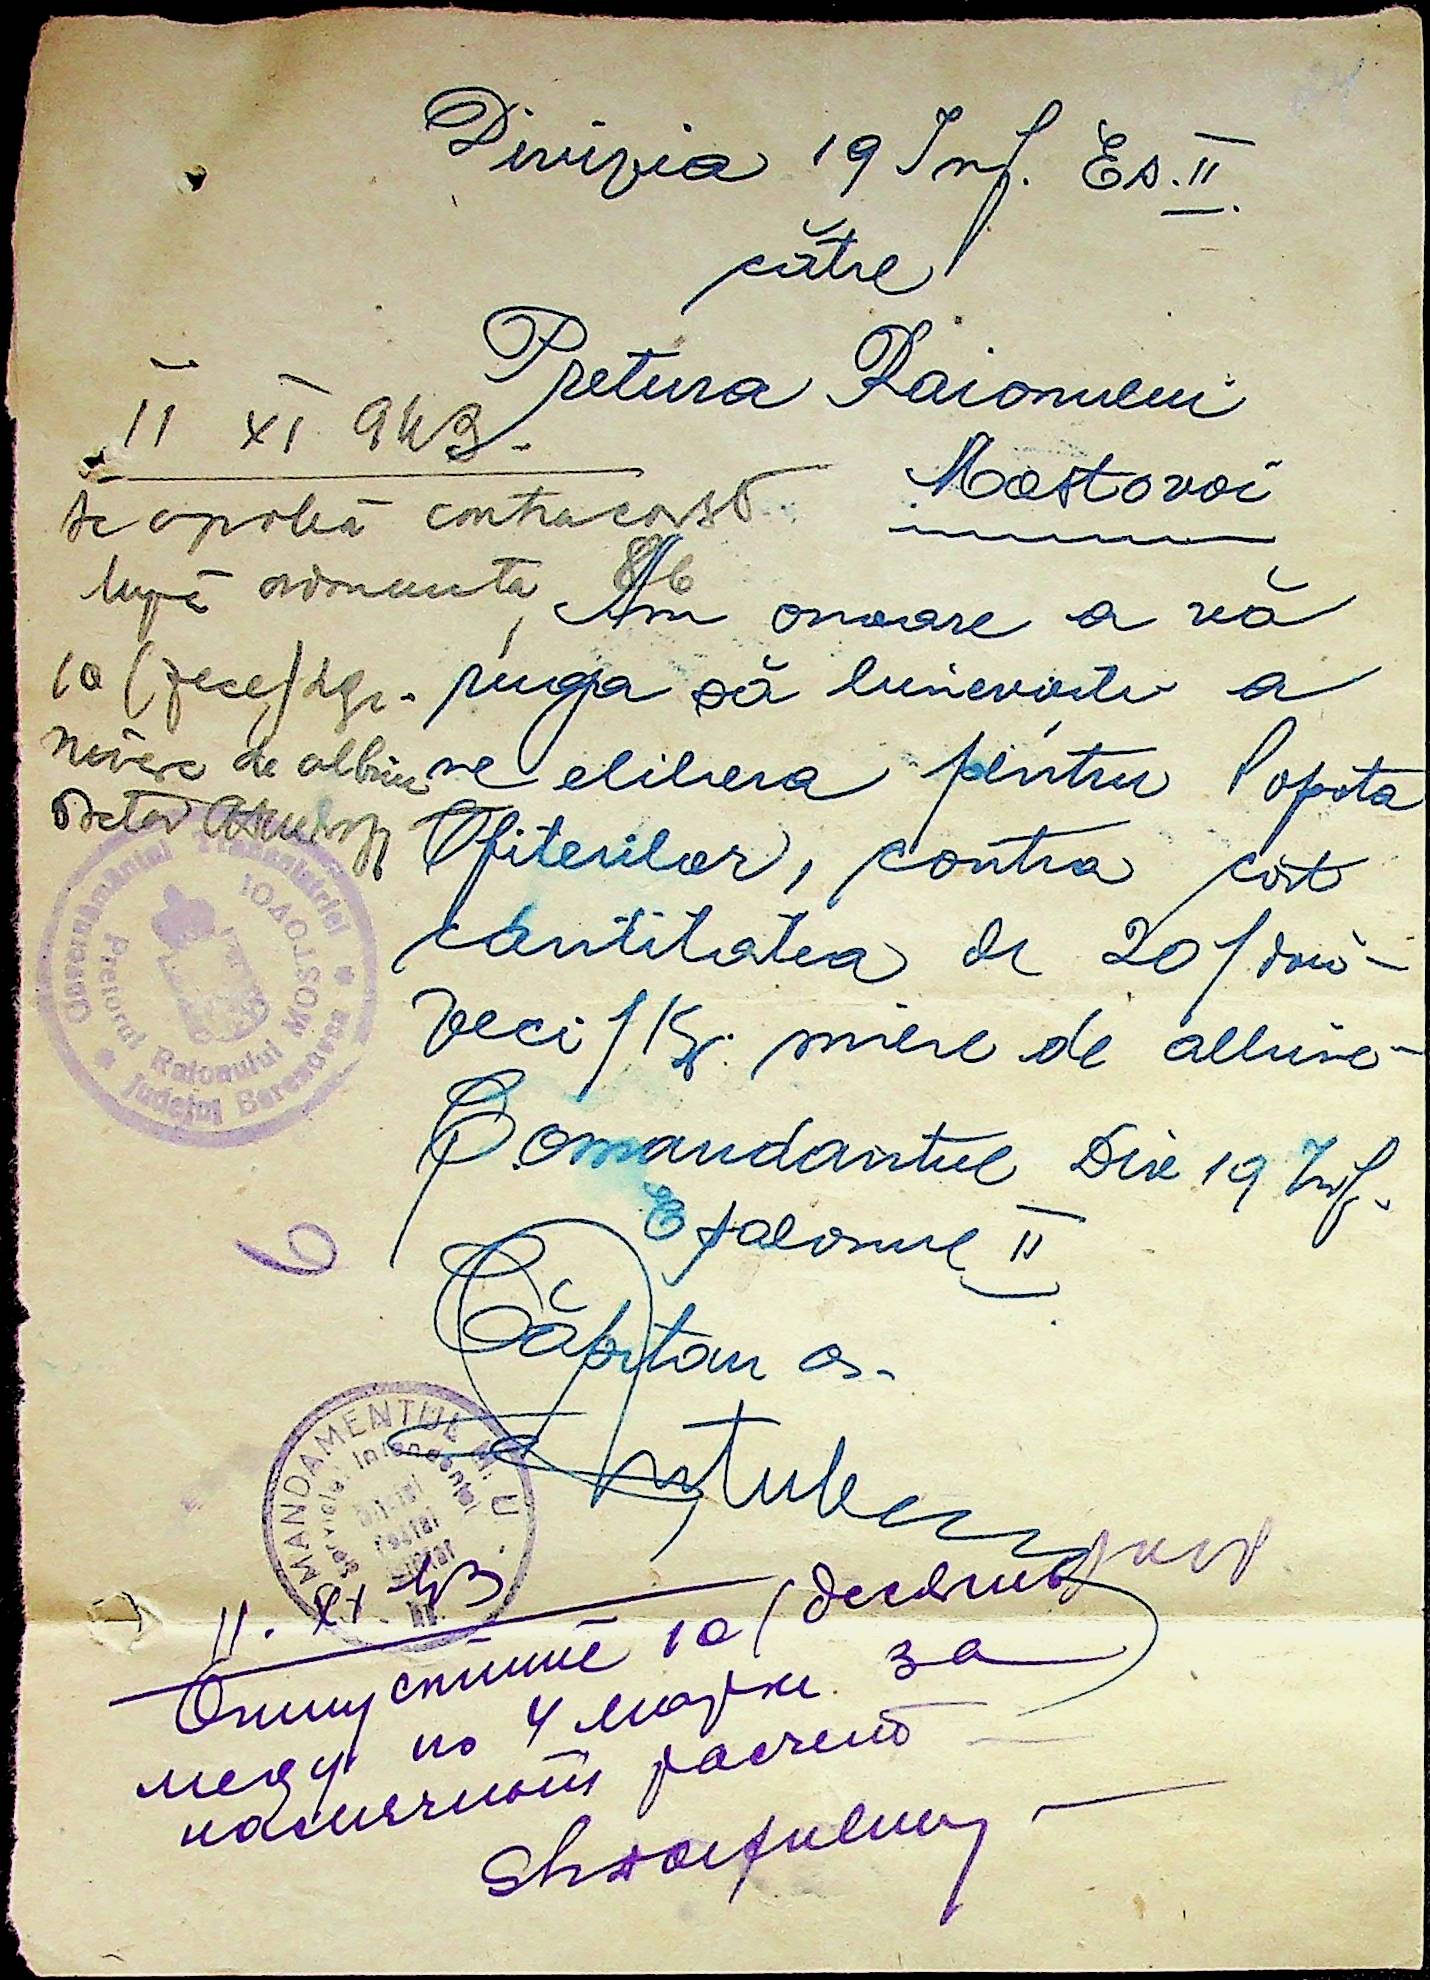 Divizia 19 Inf. Eș. II.
către
Pretura Raionului
Mostovoi
II XI 943.
Se aprobă contracost
după ordonanța 86
10 (zece) kgr.
miere de albine
Pretor
Am onoare a vă
ruga să binevoiti a
ne elibera pentru Popota
Ofiterilor, contra cost
cantitatea de 20 / două-
zeci / Kg. miere de albine-
Comandantul Div 19 Inf.
Eșalonul II
Căpitan
Guvernământul Transnistriei
Pretorul Raionului MOSTOVOI
Județul Berezovca
6
MANDAMENTUL
Serviciul Intendenței
11. XI 43
Отпустите 10 (десять)
меду по 4 марки за
наличный расчет